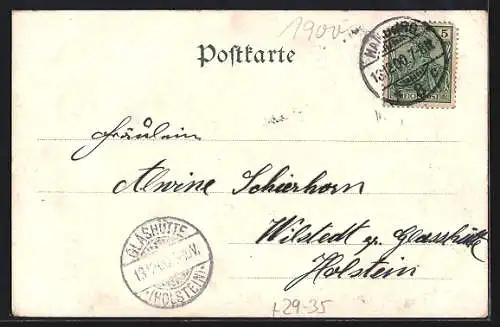 1900
Postkarte
HAMBURG
5
13.12.00. 7-8
Fräulein
Alwine Schierhorn
Wilstedt p. Glasshütte
Holstein
GLASHÜTTE
13.12.00
(HOLSTEIN)
+29-35